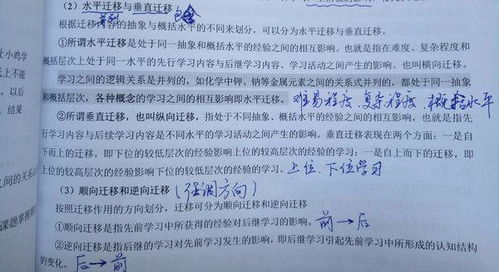 (2)水平迁移与垂直迁移
根据迁移内容的抽象与概括水平的不同来划分,可以分为水平迁移与垂直迁移。
①所谓水平迁移是处于同一抽象和概括水平的经验之间的相互影响。也就是指在难度、复杂程度和
概括层次上处于同一水平的先行学习内容与后继学习内容、学习活动之间产生的影响。也叫横向迁移。
学习之间的逻辑关系是并列的,如化学中钾、钠等金属元素之间的关系式并列的,都处于同一抽象
和概括层次,各种概念的学习之间的相互影响即水平迁移。难易程度,复杂程度,概括水平
②所谓垂直迁移,也叫纵向迁移,指处于不同抽象、概括水平的经验之间的相互影响,也就是指先
行学习内容与后续学习内容是不同水平的学习活动之间产生的影响。垂直迁移表现在两个方面:一是自
下而上的迁移,即下位的较低层次的经验影响上位的较高层次的经验的学习;一是自上而下的迁移,即
上位的较高层次的经验影响下位的较低层次的经验的学习。上位、下位学习
(3)顺向迁移和逆向迁移(强调方向)
按照迁移作用的方向划分,迁移可分为顺向迁移和逆向迁移
①顺向迁移是指先前学习中所获得的经验对后继学习的影响。前→后
②逆向迁移是指后继的学习对先前学习发生的影响,即后继学习引起先前学习中所形成的认知结构
的变化。后→前
上小鸡学
天上不能
,以后
结果
之间的关系
课题掌握